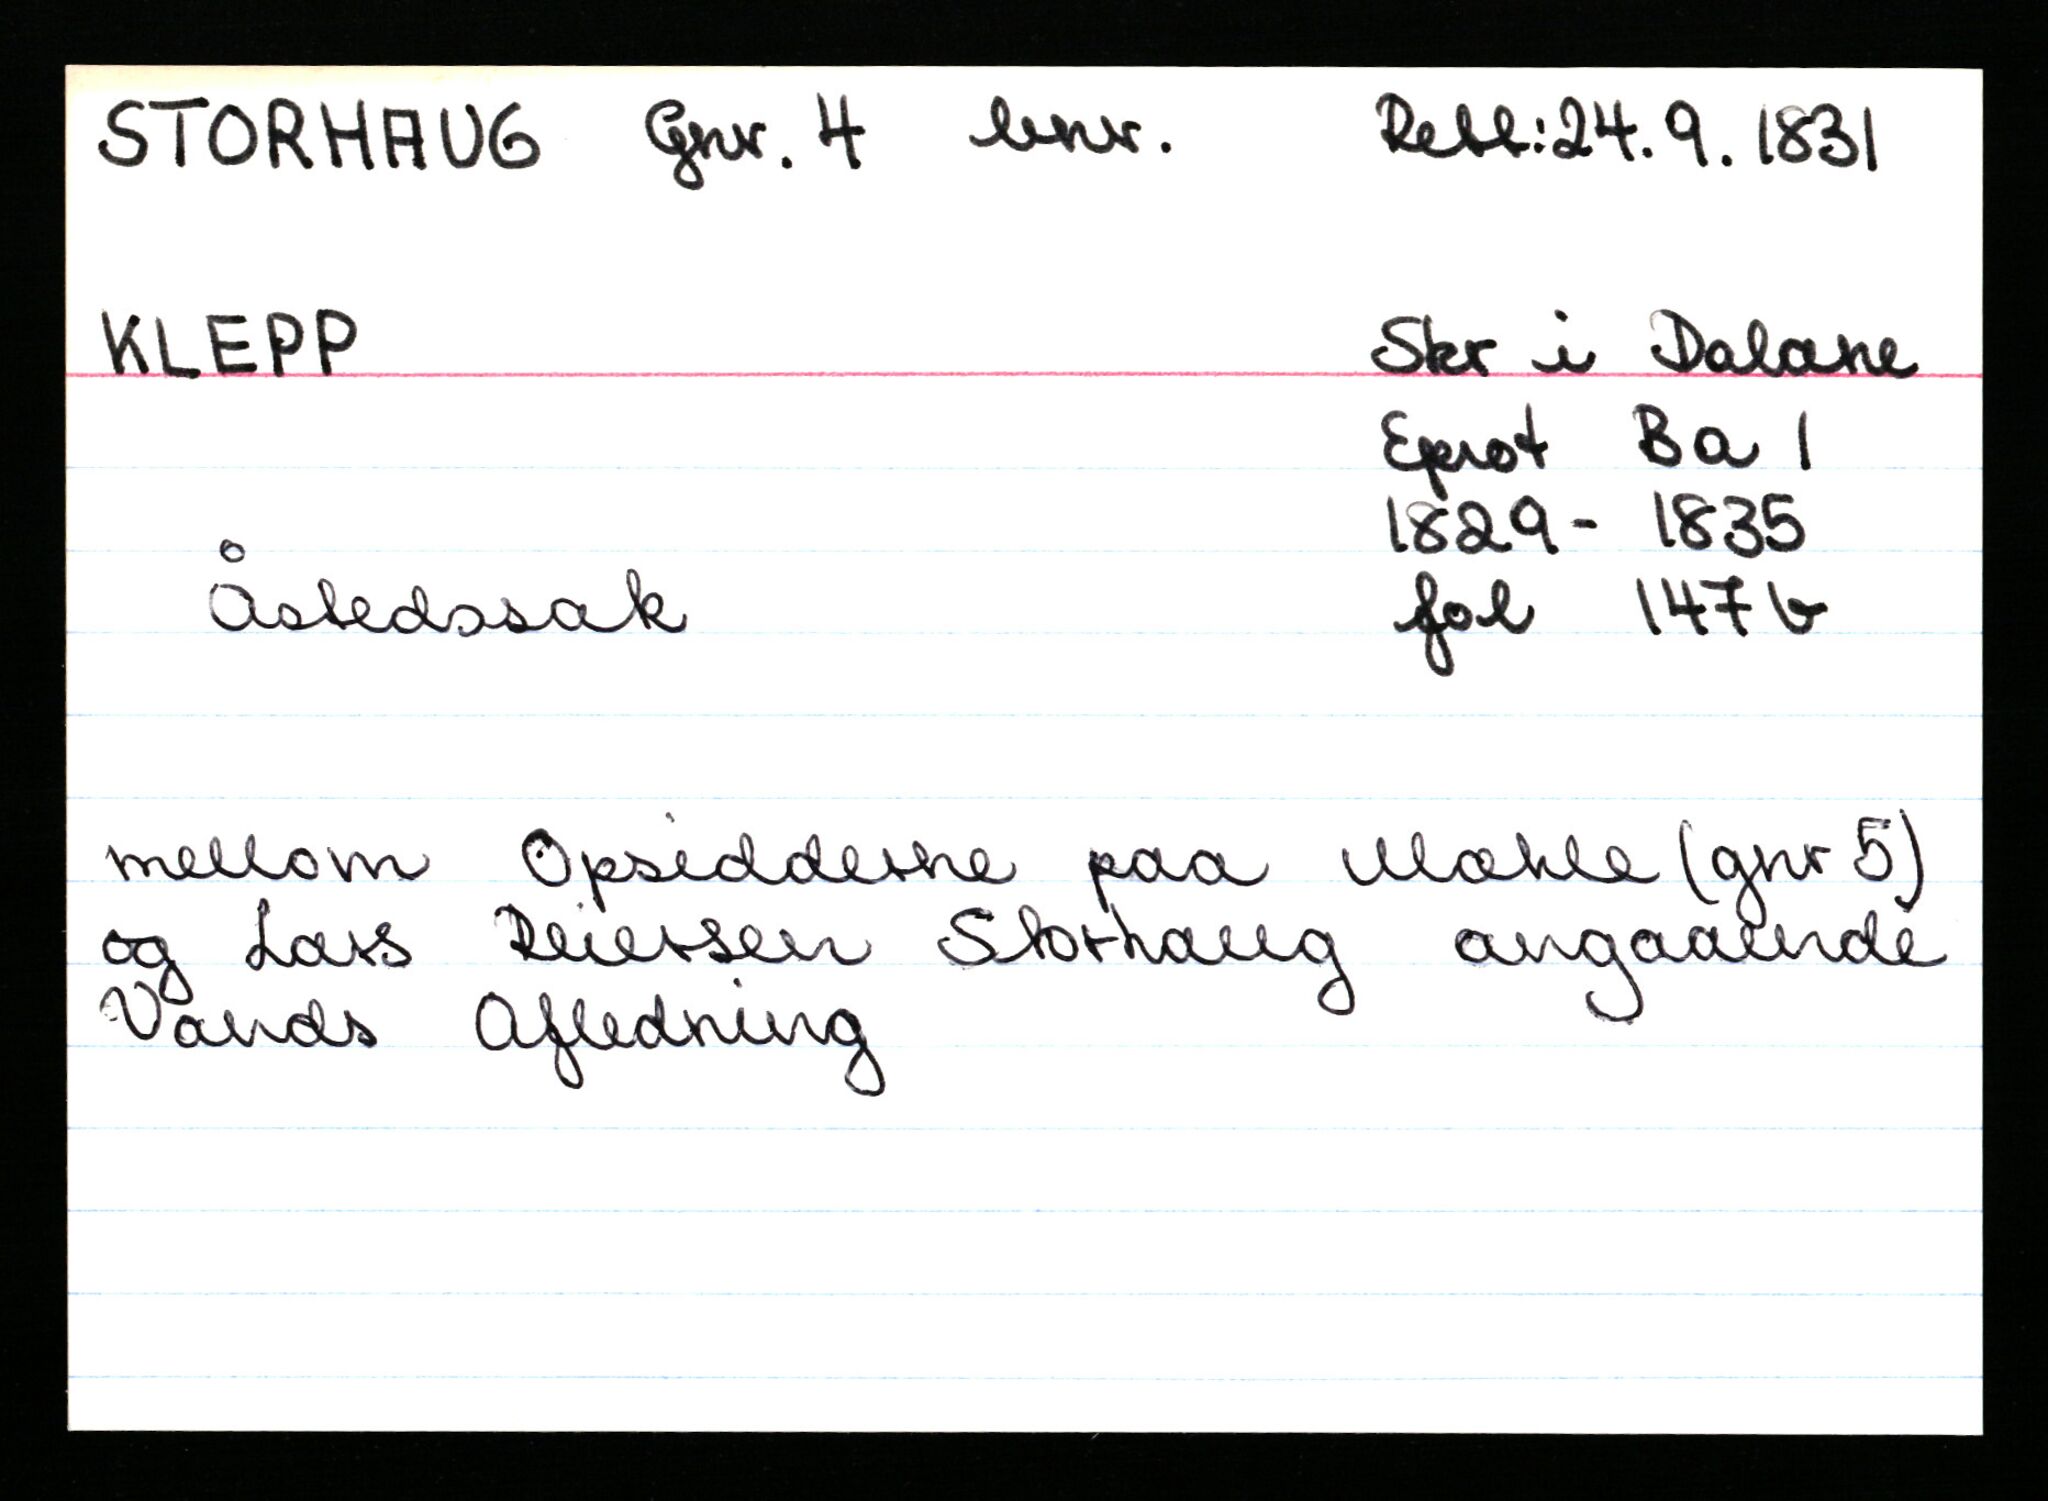 STORHAUG Gnr. 4 bnr. Rett: 24.9.1831
KLEPP Skr i Dalane
Eprot Ba 1
1829 - 1835
Åstedssak fol 147b
mellom Opsidderne paa Mæhle (gnr 5)
og Lars Reiersen Storhaug angaaende
Vands Afledning